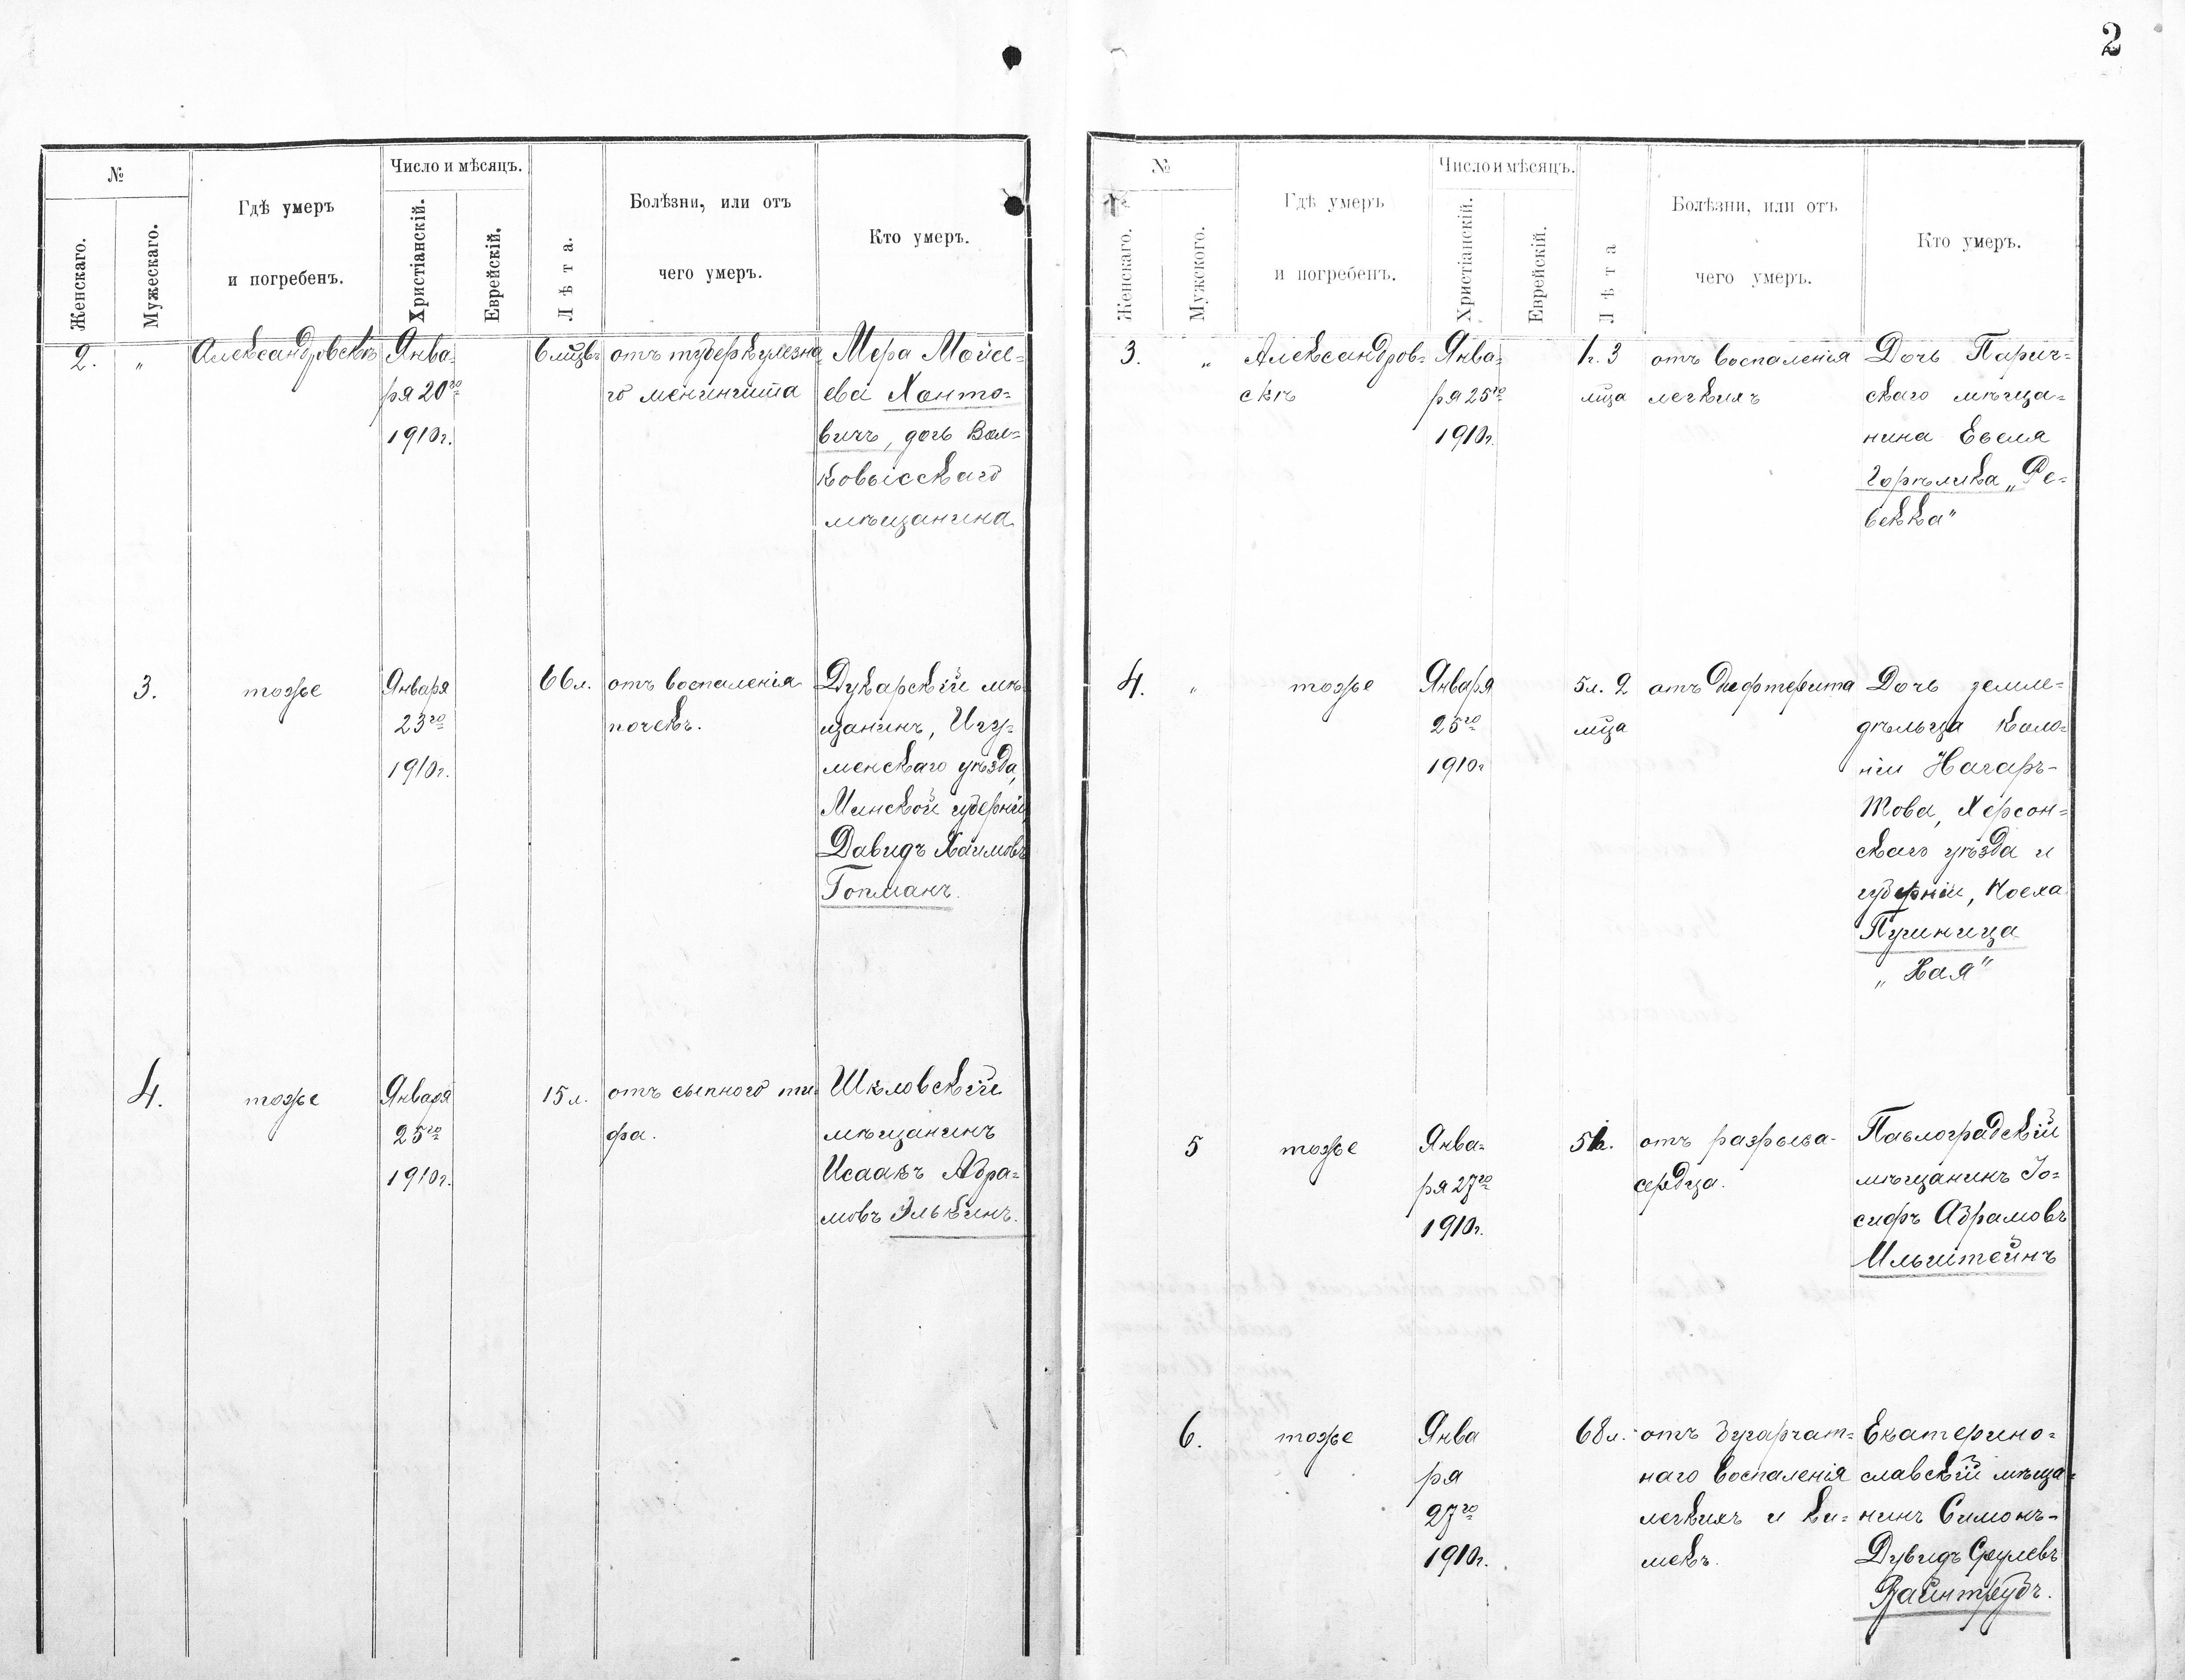 2
№
Женскаго.
Мужескаго.
Гдѣ умеръ
и погребенъ.
Число и мѣсяцъ.
Христіанскій.
Еврейскій.
Лѣта.
Болѣзни, или отъ
чего умеръ.
Кто умеръ.
2.
"
Александровскъ
Янва-
ря 20го
1910г.
6 мцвъ
отъ туберкулезна-
го менингита
Мера Мойсе-
ева Хонто-
вичъ, дочь Вол-
ковысскаго
мѣщанина
3.
тоже
Января
23го
1910г.
66л.
отъ воспаленія
почекъ.
Дукарскій мѣ-
щанинъ, Игу-
менскаго уѣзда,
Минской губерніи,
Давидъ Хаимовъ
Гопманъ.
4.
тоже
Января
25го
1910г.
15л.
отъ сыпного ти-
фа.
Шкловскій
мѣщанинъ
Исаакъ Абра-
мовъ Элькинъ.
№
Женскаго.
Мужского.
Гдѣ умеръ
и погребенъ.
Число и мѣсяцъ.
Христіанскій.
Еврейскій.
Лѣта
Болѣзни, или отъ
чего умеръ.
Кто умеръ.
3.
"
Александров-
скъ
Янва-
ря 25го
1910г.
1г. 3
мца
отъ воспаленія
легкихъ
Дочь Парич-
скаго мѣща-
нина Евеля
Горѣлика „Ре-
векка"
4.
"
тоже
Января
25го
1910г
5л. 2
мца
отъ дифтерита
Дочь земле-
дѣльца коло-
ніи Нагаръ-
това, Херсон-
скаго уѣзда и
губерніи, Іосла
„Хая"
5
тоже
Янва-
ря 27го
1910г.
отъ разрыва
сердца.
Павлоградскій
мѣщанинъ Іо-
сифъ Абрамовъ
Ильштейнъ
6.
тоже
Янва
ря
27го
1910г.
68л.
отъ
наго воспаленія
легкихъ и ки-
шекъ.
Екатерино-
славскій мѣща-
нинъ Симонъ-
Дувидъ Срулевъ
Вайнтрубъ.